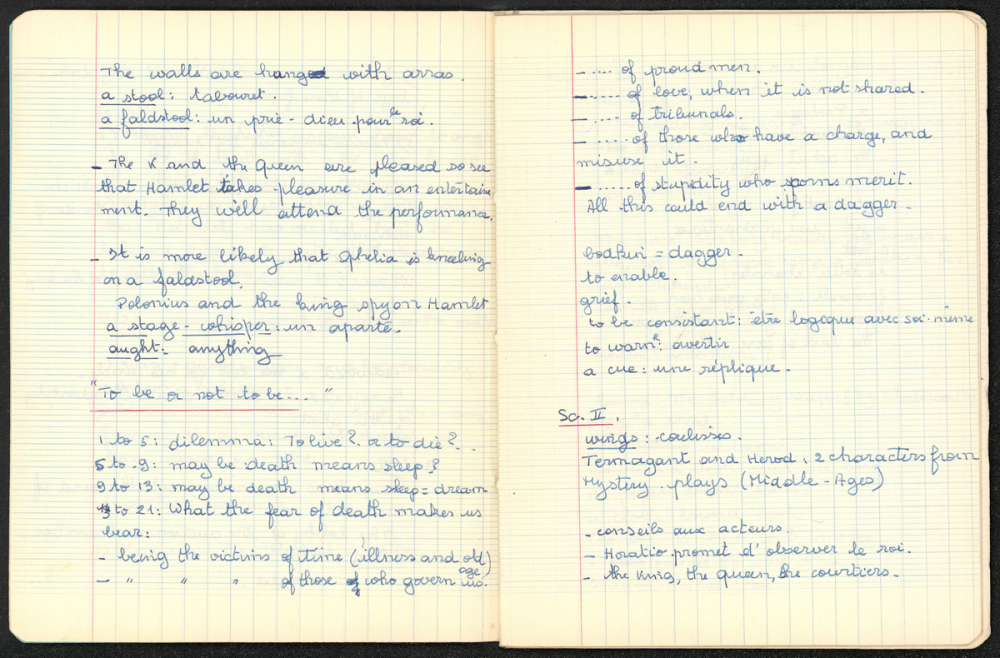 The walls are hanged with arras.
a stool : tabouret.
a faldstool : un prie-dieu pour le roi.
- The K and the Queen are pleased so see
that Hamlet takes pleasure in an entertaine
ment. They will attend the performance.
- It is more likely that Ophelia is kneeling
on a faldstool.
Polonius and the king spy on Hamlet
a stage-whisper : un aparté.
aught : anything
"To be or not to be... "
1 to 5 : dilemma : To live ? or to die ?
5 to 9 : may be death means sleep ?
9 to 13 : may be death means sleep = dream
13 to 21 : What the fear of death makes us
bear :
- being the victims of time (illness and old age)
- " " " of those who govern us.
- .... of proud men.
- ..... of love, when it is not shared.
- .... of tribunals.
- .... of those who have a charge, and
misuse it.
- ..... of stupidity who spurns merit.
All this could end with a dagger.
bodkin = dagger.
to enable.
grief.
to be consistant : être logique avec soi-même
to warn : avertir
a cue : une réplique.
Sc. II.
wings : coulisses.
Termagant and Herod : 2 characters from
Mystery-plays (Middle-Ages)
- conseils aux acteurs.
- Horatio promet d'observer le roi.
- the King, the queen, the courtiers.